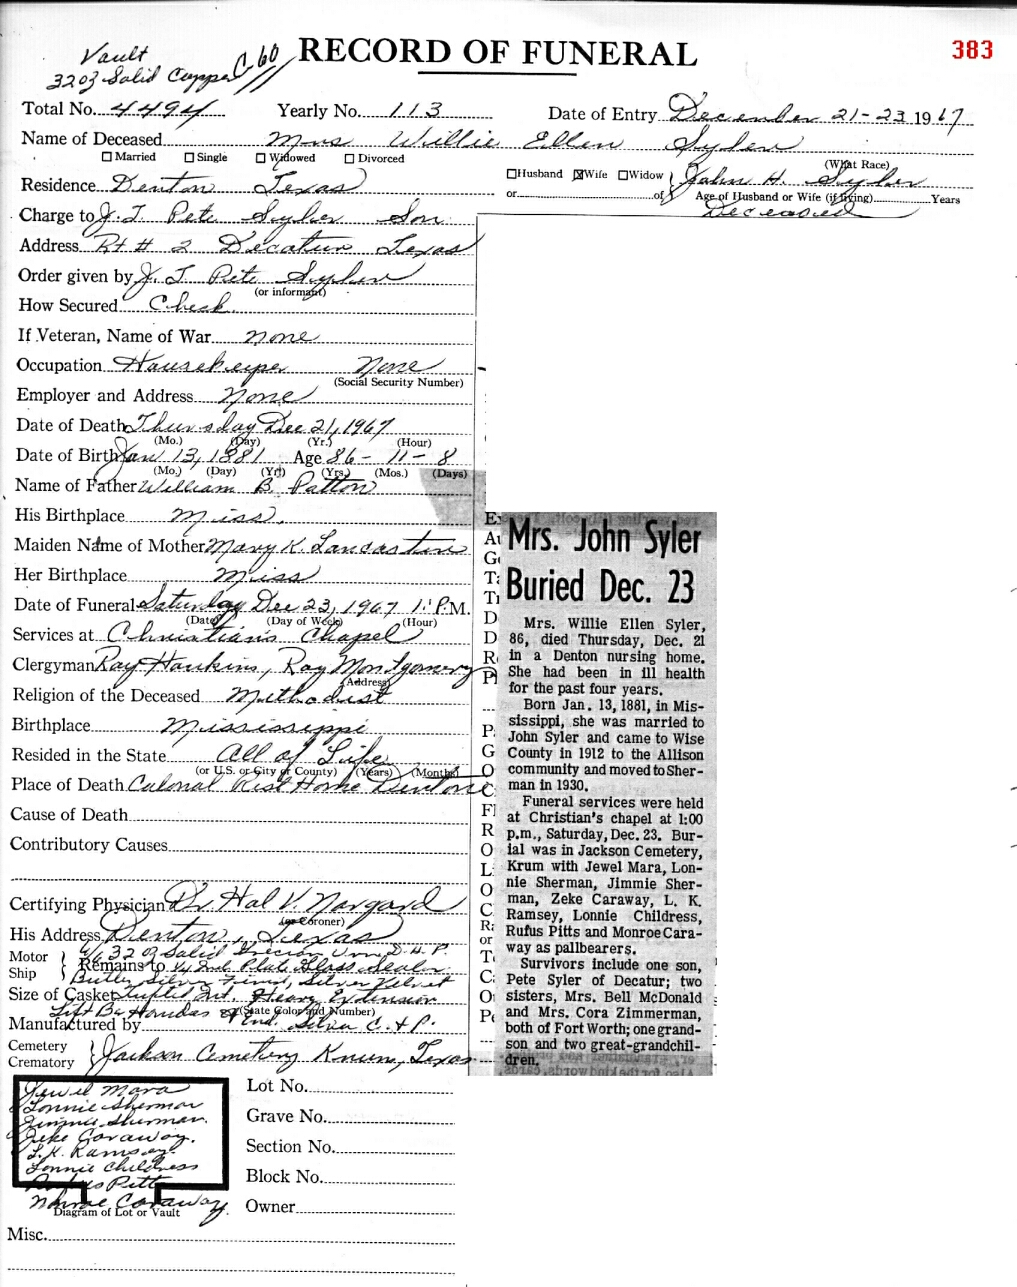 Vault
32 oz Solid Copper C-60
RECORD OF FUNERAL
383
Total No. 4494 Yearly No. 113 Date of Entry December 21-23 1967
Name of Deceased Mrs Willie Ellen Syler
Married Single Widowed Divorced (What Race)
Residence Denton Texas Husband Wife Widow John H. Syler
or of Age of Husband or Wife (if living) Years
Deceased
Charge to J. T. Pete Syler Son
Address Rt # 2 Decatur Texas
Order given by J. T. Pete Syler
(or informant)
How Secured Check
If Veteran, Name of War none
Occupation Housekeeper None
(Social Security Number)
Employer and Address None
Date of Death Thursday Dec 21, 1967
(Mo.) (Day) (Yr.) (Hour)
Date of Birth Jan 13, 1881 Age 86-11-8
(Mo.) (Day) (Yr) (Yrs.) (Mos.) (Days)
Name of Father William B. Patton
His Birthplace Miss.
Maiden Name of Mother Mary K. Lancaster
Her Birthplace Miss
Date of Funeral Saturday Dec 23, 1967 1: P.M.
(Date) (Day of Week) (Hour)
Services at Christians Chapel
Clergyman Ray Hankins, Ray Montgomery
(Address)
Religion of the Deceased Methodist
Birthplace Mississippi
Resided in the State All of Life
(or U.S. or City or County) (Years) (Months)
Place of Death Colonal Rest Home Denton
Cause of Death
Contributory Causes
Certifying Physician Dr. Hal V. Norgard
(or Coroner)
His Address Denton, Texas
Motor
Ship
32 oz Solid
Remains to Plate Glass Sealer
Silver Finish, Silver Velvet
Size of Casket Tufted Int. Heavy Extension
(State Color and Number)
Lift Bar Handles
Manufactured by Silver C. & P.
Cemetery
Crematory
Jackson Cemetery Krum, Texas
Jewel Mara
Lonnie Sherman
Jimmie Sherman.
Zeke Caraway.
L. K. Ramsey.
Lonnie Childress
Rufus Pitts
Monroe Caraway
Diagram of Lot or Vault
Lot No.
Grave No.
Section No.
Block No.
Owner
Misc.
Mrs. John Syler
Buried Dec. 23
Mrs. Willie Ellen Syler,
86, died Thursday, Dec. 21
in a Denton nursing home.
She had been in ill health
for the past four years.
Born Jan. 13, 1881, in Mis-
sissippi, she was married to
John Syler and came to Wise
County in 1912 to the Allison
community and moved to Sher-
man in 1930.
Funeral services were held
at Christian's chapel at 1:00
p.m., Saturday, Dec. 23. Bur-
ial was in Jackson Cemetery,
Krum with Jewel Mara, Lon-
nie Sherman, Jimmie Sher-
man, Zeke Caraway, L. K.
Ramsey, Lonnie Childress,
Rufus Pitts and Monroe Cara-
way as pallbearers.
Survivors include one son,
Pete Syler of Decatur; two
sisters, Mrs. Bell McDonald
and Mrs. Cora Zimmerman,
both of Fort Worth; one grand-
son and two great-grandchil-
dren.